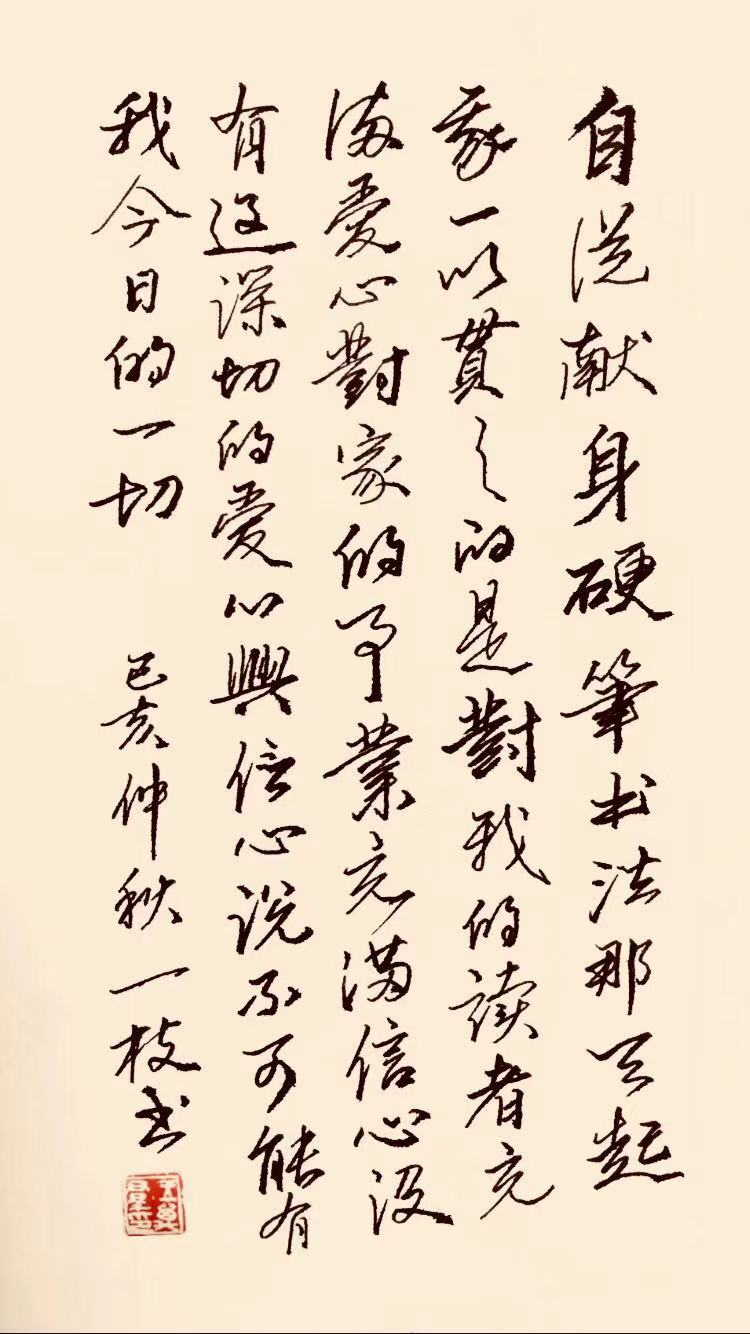 自從献身硬筆书法那天起
我一以貫之的是對我的读者充
满爱心對家的事業充满信心没
有这深切的爱心與信心说不可能有
我今日的一切
己亥仲秋一枝书